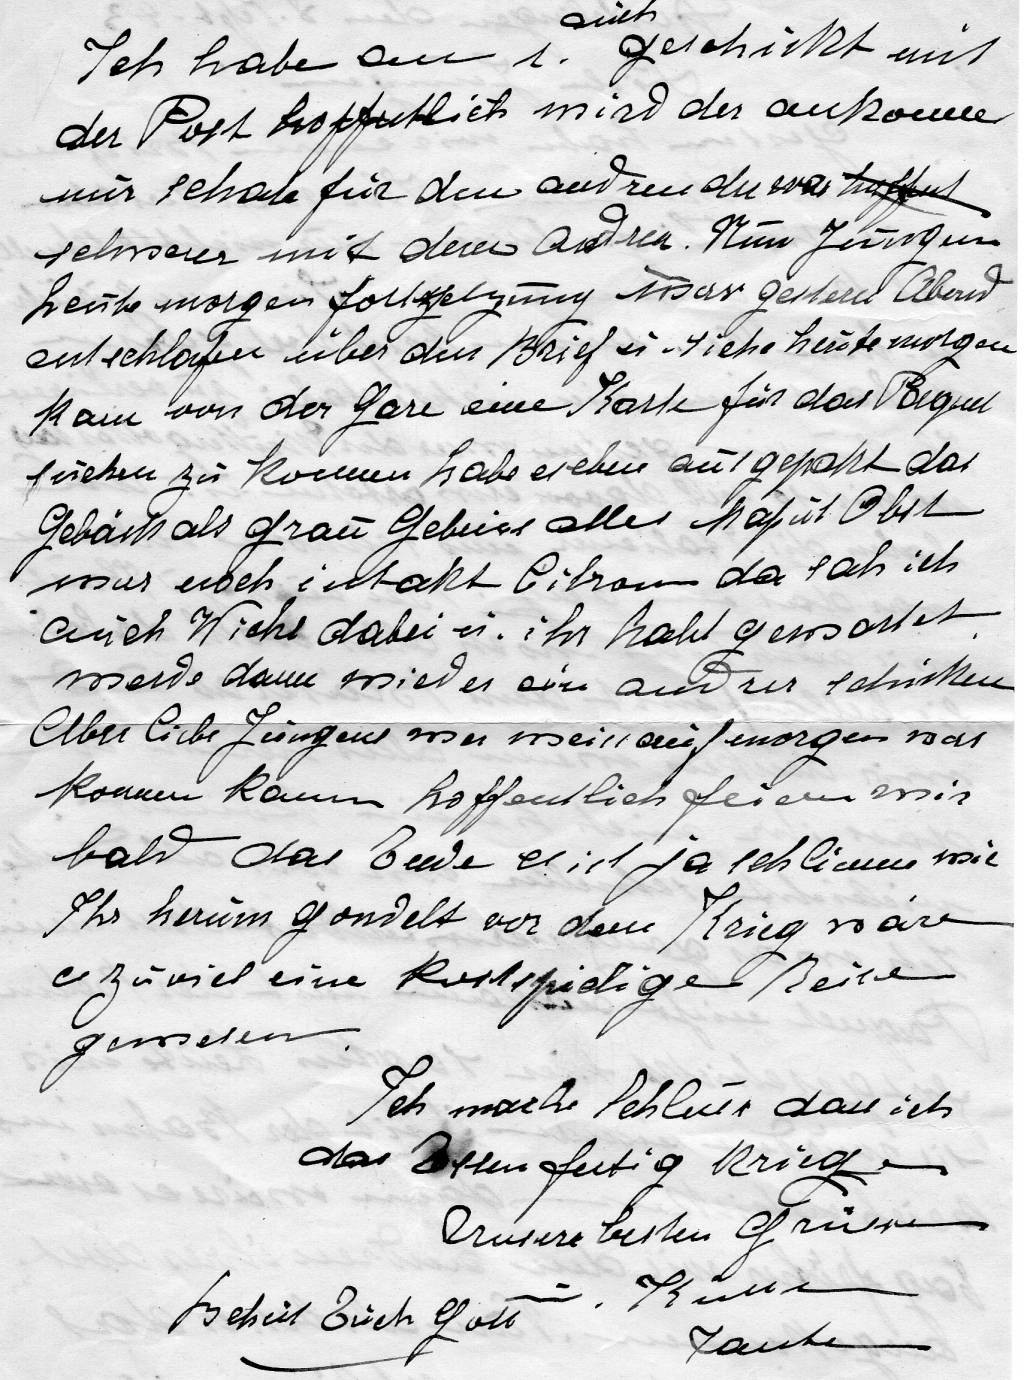 auch
Ich habe am 1. geschickt mit
der Post hoffentlich wird der ankomme
nür schade für den andren der war
schwerer mit deren Andrea. Nün Jüngen
heute morgen fortsetzung war gestern Abend
entschlafen über den Brief ü. siehe heüte morgen
kam von der Gare eine Karte für das Paquet
süchen zü kommen habe eseben aüsgepakt das
Gebäck als graü Gebeise alles kapüt Obst
war noch intakt Citron da sah ich
aüch Wichs dabei ü. ihr habt gewartet.
werde dann wieder ein andrer schicken
Aber liebe Jüngens wer weiss aüf morgen was
kommen kann hoffentlich feiern wir
bald das Ende es ist ja schlimm wie
Ihr herüm gondelt vor dem Krieg wäre
es züviel eine kostspielige Reise
gewesen.
Ich mache Schlüss dass ich
das Essen fertig kriege
Unsere besten Grüsse
ü. Küsse
Behüt Eüch Gott
Tante